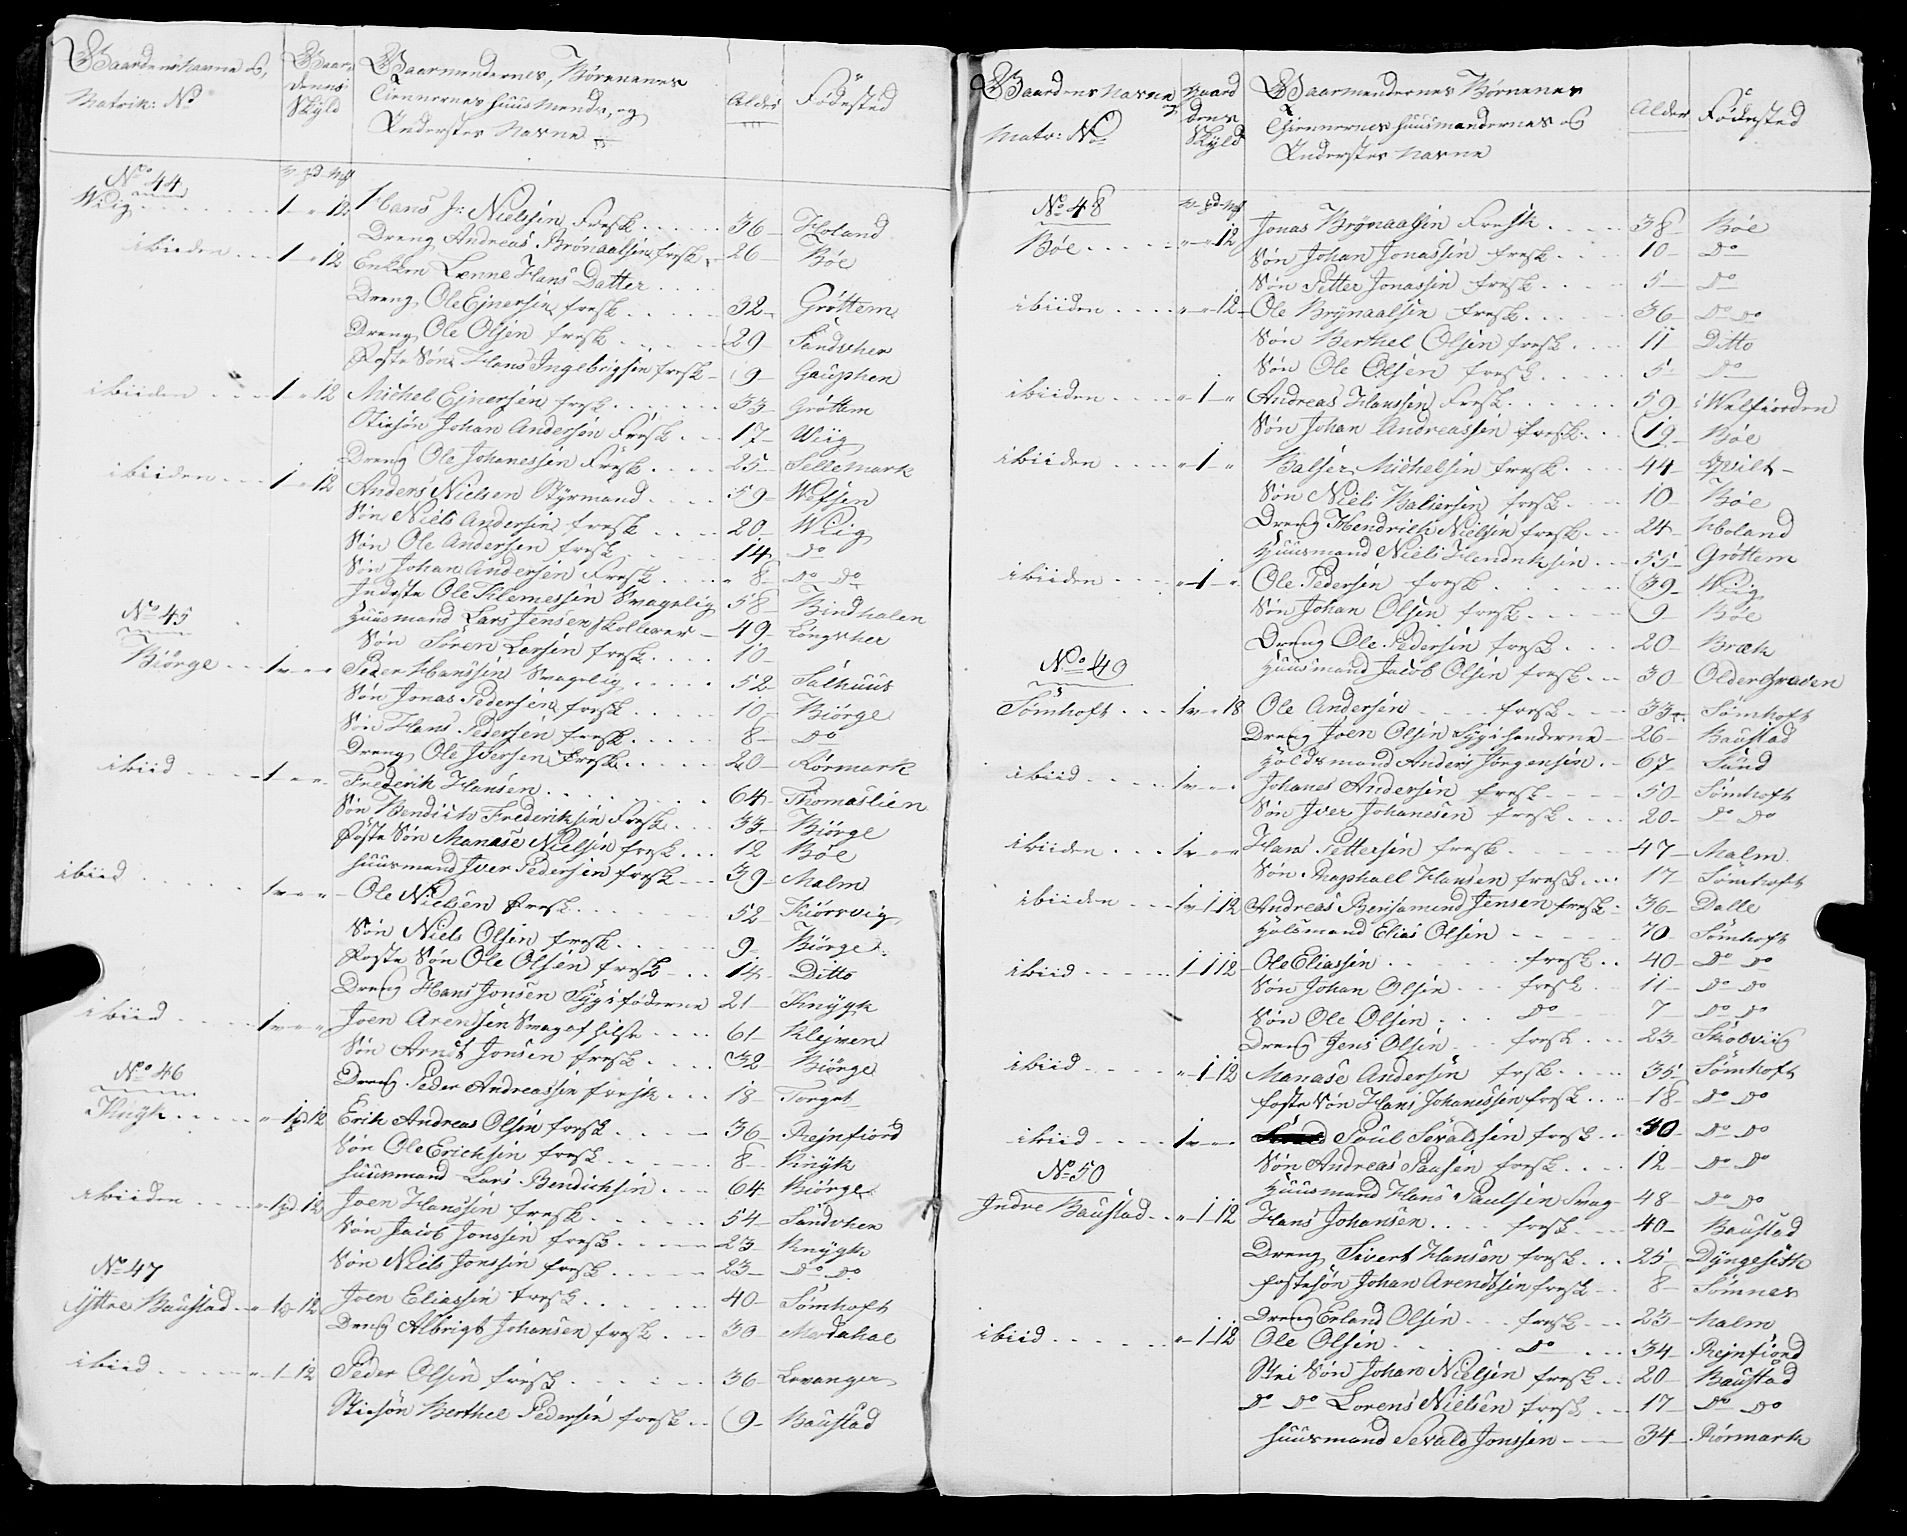 Gaardens Navne og,
Matrik: No
Gaardens
Skyld
Gaarmendernes, Børnenes
Tiennernes Huusmends, og
Inderstes Navne
Alder
Fødested
No 44
Wiig 1 - " 12 Hans Jr: Nielssen Fresk 36 Holand
Dreng Andreas Brönaalsen fresk 26 Böe
ibiiden 1 - " 12 Enken Lenne Hans Datter
Dreng Ole Ejnersen fresk 32 Gröttem
Dreng Ole Olsen fresk 29 Sandvher
Foste Søn Hans Ingebrigsen fresk 9 Gauphen
ibiiden 1 " 12 Michel Ejnersen fresk 33 Gröttem
Stiesön Johan Andersen Fresk 17 Wiig
Dreng Ole Johanessen Fresk 25 Tellemark
ibiiden 1 " 12 Anders Nielsen Styrmand 59 Wefsen
Søn Niels Andersen fresk 20 Wiig
Søn Ole Andersen fresk 14 Do
Søn Johan Andersen Fresk 8 Do Do
Inderste Ole Klemessen Svagelig 58 Bindhalen
No 45
Huusmand Lars Jensen Skollerer 49 Löngvher
Søn Sören Larsen fresk 10
Biörge 1 " " Peder Hanssen Svagelig 52 Salhuus
Søn Jonas Pedersen fresk 10 Biörge
Søn Hans Pedersen fresk 8 Do
Dreng Ole Iversen Fresk 20 Rörmark
ibiid 1 " " Frederik Hansen 64 Thomaslien
Søn Bendich Frederiksen Fresk 33 Biörge
Foste Søn Manase Nielsen fresk 12 Böe
Huusmand Iver Pedersen fresk 39 Malm
ibiid 1 " " Ole Nielsen Fresk 52 Kiörsvig
Søn Niels Olsen fresk 9 Biörge
Foste Søn Ole Olsen fresk 14 Ditto
Dreng Hans Jonsen Syg i föderne 21 Knygh
ibiid 1 " " Joen Arentsen Svag af hilse 61 Klejven
Søn Arent Jonsen fresk 32 Biörge
Dreng Peder Andreassen fresk 18 Torget
No 46
Knygh " 1 12 Erik Andreas Olsen fresk 36 Rejnfiord
Søn Ole Erichsen fresk 8 Knygh
Huusmand Lars Bendichsen 64 Biörge
ibiiden " 1 12 Joen Hanssen fresk 54 Sandvher
Søn Jacob Jonssen fresk 23 Knygh
Søn Niels Jonssen fresk 23 Do Do
No 47
Yttre Baustad " 1 12 Joen Eliassen fresk 40 Sömhoft
Dreng Albrigt Johansen fresk 30
ibiid " 1 12 Peder Olsen fresk 36 Levanger
Stiesön Berthel Pedersen fresk 9 Baustad
Gaardens Navne og
Matr: No
Gaardens
Skyld
Gaarmendernes Børnenes
Tiennernes Huusmendernes og
Inderstes Navne
Alder
Fødested
No 48
Böe " " 12 Jonas Brynaalsen Fresk 38 Böe
Søn Johan Jonassen fresk 10 Do
Søn Petter Jonassen fresk 5 Do
ibiiden " " 12 Ole Brynaalsen fresk 36 Do Do
Søn Berthel Olsen fresk 11 Ditto
Søn Ole Olsen fresk 5 Do
ibiiden " 1 " Andreas Hanssen Fresk 59 i Welfiorden
Søn Johan Andreassen fresk 19 Böe
ibiiden " 1 " Balser Michelsen fresk 44
Søn Niels Baltsersen fresk 10 Böe
Dreng Hendrich Nielsen fresk 24 Holand
Huusmand Niels Hendrichsen 55 Gröttem
ibiiden " 1 " Ole Pedersen fresk 39 Wiig
Søn Johan Olsen fresk 9 Böe
Dreng Ole Pedersen fresk 20 Bræk
Huusmand Jacob Olsen fresk 30 Oldergraven
No 49
Sömhoft 1 " 18 Ole Andersen fresk 33 Sömhoft
Dreng Joen Olsen Syg i henderne 26 Baustad
Holdsmand Anders Jörgensen 67 Sund
ibiid 1 " " Johanes Andersen fresk 50 Sömhoft
Søn Iver Johanesen fresk 20 Do Do
ibiiden 1 " " Hans Pettersen fresk 47 Malm
Søn Raphael Hansen fresk 17 Sömhoft
ibiiden 1 1 12 Andreas Bensamend Jensen fresk 36 Dalle
Holsmand Elias Olsen 70 Sömhoft
ibiid 1 1 12 Ole Eliassen fresk 40 Do Do
Søn Johan Olsen fresk 11 Do Do
Søn Ole Olsen Do 7 Do Do
Dreng Jens Olsen fresk 23 Skoviig
ibiid " 1 12 Manase Andersen fresk 35 Sömhoft
Foste Søn Hans Johanessen fresk 18 Do Do
ibiid 1 " " Poul Sevaldsen fresk 40 Do Do
Søn Andreas Pausen fresk 12 Do Do
No 50
Huusmand Hans Paulsen Svag 48 Do Do
Indre Baustad " 1 12 Hans Johansen fresk 40 Baustad
Dreng Sivert Hansen fresk 25 Dyngeseth
Fostesøn Johan Arentssen fresk 8 Sömnes
Dreng Erland Olsen fresk 23 Malm
ibiid " 1 12 Ole Olsen Do 34 Rejnfiord
Stei Søn Johan Nielsen fresk 20 Baustad
Do Do Lorens Nielsen fresk 17 Do Do
Huusmand Sevald Jonssen 34 Rörmark